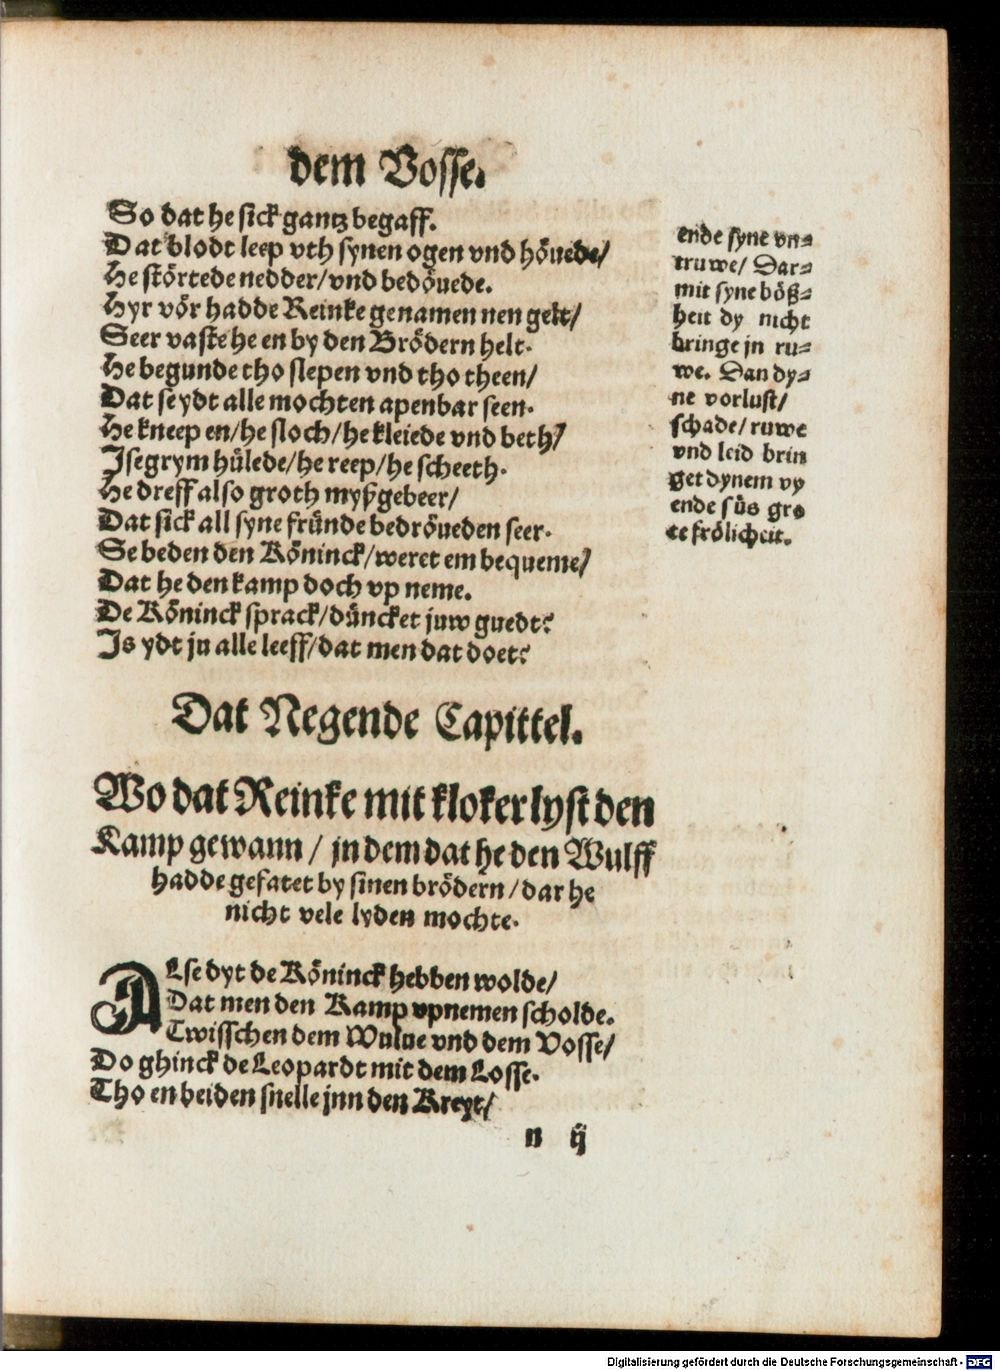 dem Vosse.
So dat he sick gantz begaff.
Dat blodt leep vth synen ogen vnd höuede/
He störtede nedder/vnd bedöuede.
Hyr vör hadde Reinke genamen nen gelt/
Seer vaste he en by den Brödern helt.
He begunde tho slepen vnd tho theen/
Dat seydt alle mochten apenbar seen.
He kneep en/he sloch/he kleiede vnd beth/
Isegrym hülede/he reep/he scheeth.
He dreff also groth myßgebeer/
Dat sick all syne fründe bedröueden seer.
Se beden den Köninck/weret em bequeme/
Dat he den kamp doch vp neme.
De Köninck sprack/düncket juw guedt?
Is ydt ju alle leeff/dat men dat doet?
ende syne vn⸗
truwe/ Dar⸗
mit syne böß⸗
heit dy nicht
bringe jn ru⸗
we. Dan dy⸗
ne vorlust/
schade/ruwe
vnd leid brin
get dynem vy
ende süs gro
te frölicheit.
Dat Negende Capittel.
Wo dat Reinke mit kloker lyst den
Kamp gewann / jn dem dat he den Wulff
hadde gefatet by sinen brödern/dar he
nicht vele lyden mochte.
Alse dyt de Köninck hebben wolde/
Dat men den Kamp vpnemen scholde.
Twisschen dem Wulue vnd dem Vosse/
Do ghinck de Leopardt mit dem Losse.
Tho en beiden snelle jnn den Kreyt/
n ij
Digitalisierung gefördert durch die Deutsche Forschungsgemeinschaft - DFG